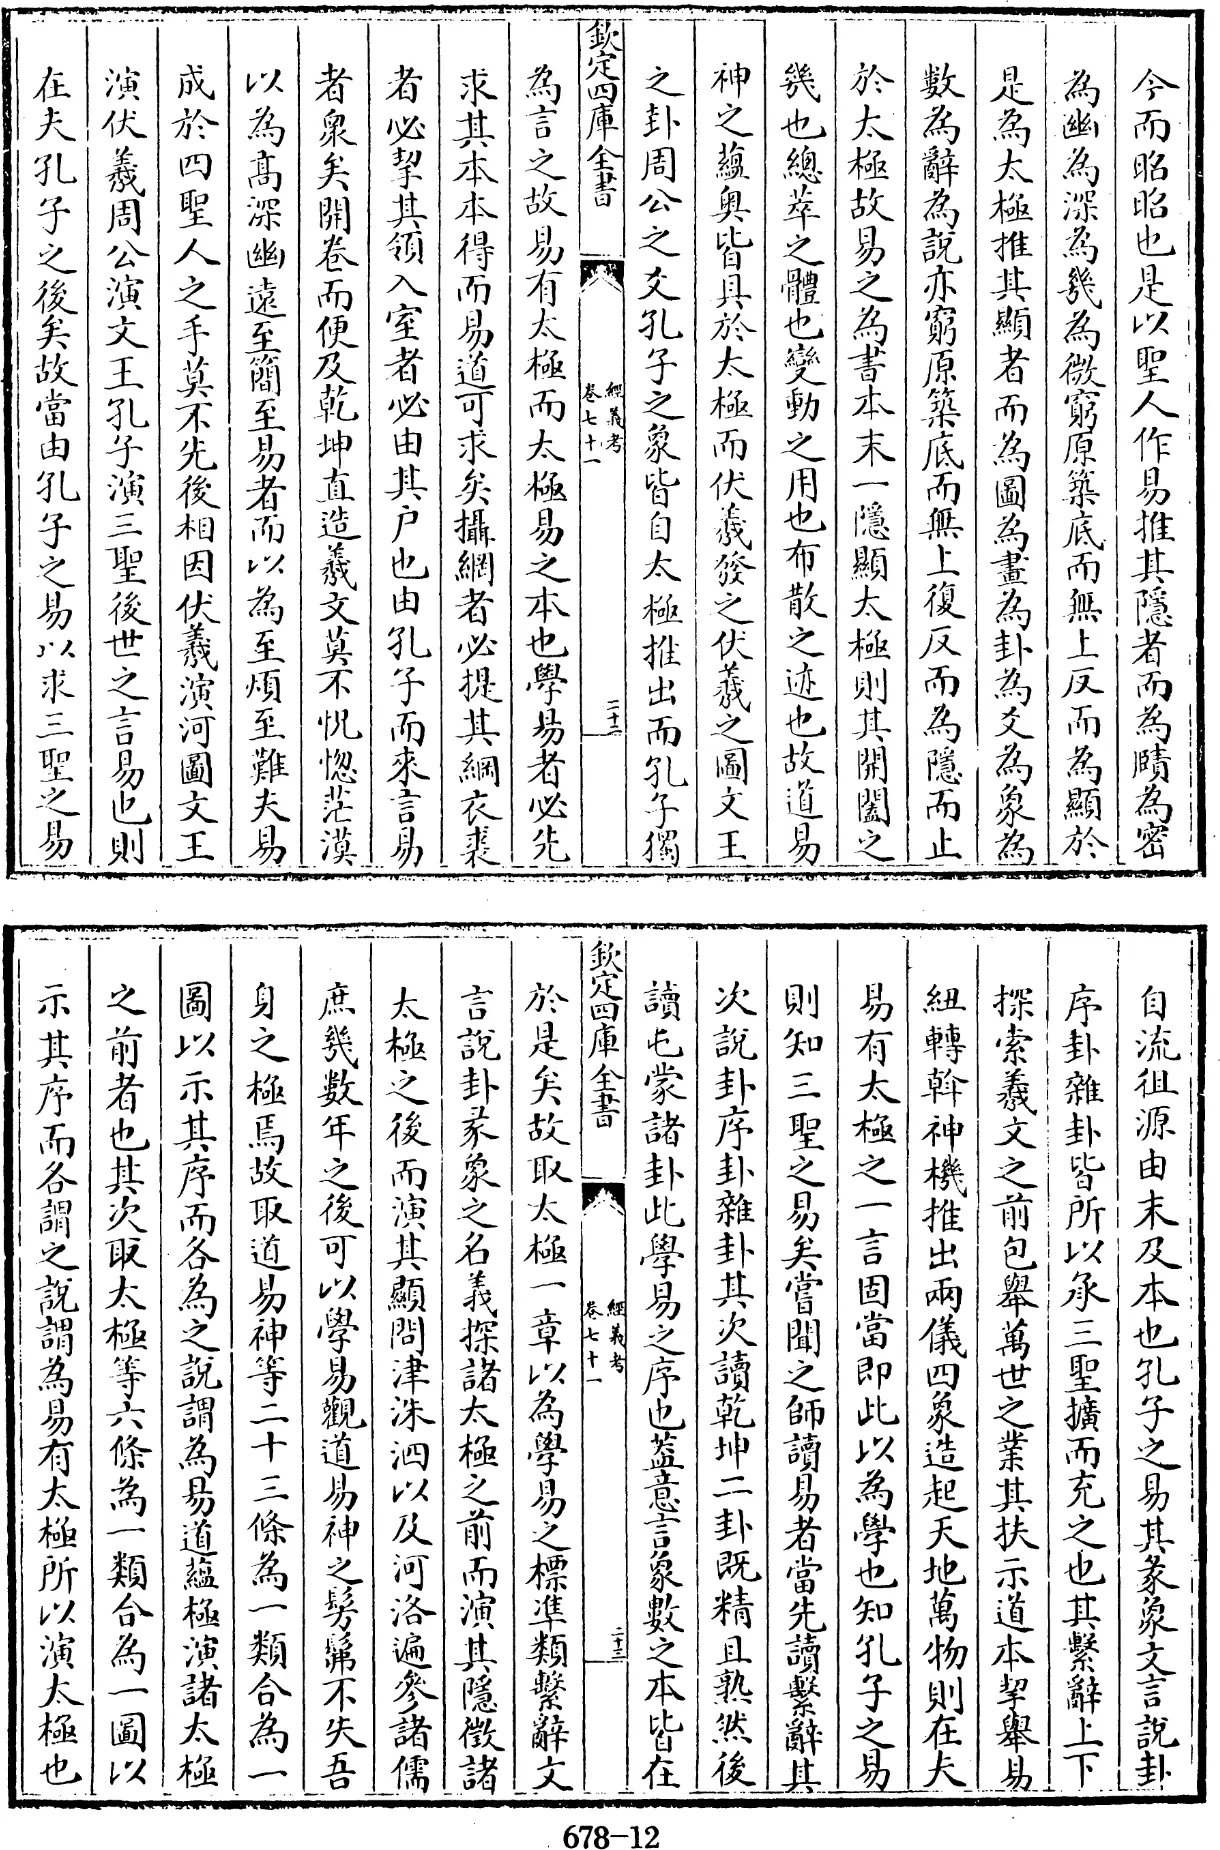 今而昭昭也是以聖人作易推其隱者而為賾為密
為幽為深為幾為微窮原築底而無上反而為顯於
是為太極推其顯者而為圖為畫為卦為爻為象為
數為辭為說亦窮原築底而無上復反而為隱而止
於太極故易之為書本末一隱顯太極則其開闔之
幾也總萃之體也變動之用也布散之迹也故道易
神之蘊奥皆具於太極而伏羲發之伏羲之圖文王
之卦周公之爻孔子之象皆自太極推出而孔子獨
欽定四庫全書
經義考
卷七十一
二十二
為言之故易有太極而太極易之本也學易者必先
求其本本得而易道可求矣攝網者必提其綱衣裘
者必挈其領入室者必由其户也由孔子而來言易
者衆矣開卷而便及乾坤直造羲文莫不怳惚茫漠
以為髙深幽遠至簡至易者而以為至煩至難夫易
成於四聖人之手莫不先後相因伏羲演河圖文王
演伏羲周公演文王孔子演三聖後世之言易也則
在夫孔子之後矣故當由孔子之易以求三聖之易
自流徂源由末及本也孔子之易其彖象文言說卦
序卦雜卦皆所以承三聖擴而充之也其繫辭上下
探索羲文之前包舉萬世之業其扶示道本挈舉易
紐轉斡神機推出兩儀四象造起天地萬物則在夫
易有太極之一言固當即此以為學也知孔子之易
則知三聖之易矣嘗聞之師讀易者當先讀繫辭其
次說卦序卦雜卦其次讀乾坤二卦既精且熟然後
讀屯蒙諸卦此學易之序也葢意言象數之本皆在
欽定四庫全書
經義考
卷七十一
二十三
於是矣故取太極一章以為學易之標準類繫辭文
言說卦彖象之名義探諸太極之前而演其隱徵諸
太極之後而演其顯問津洙泗以及河洛遍參諸儒
庶幾數年之後可以學易觀道易神之髣髴不失吾
身之極焉故取道易神等二十三條為一類合為一
圖以示其序而各為之說謂為易道蘊極演諸太極
之前者也其次取太極等六條為一類合為一圖以
示其序而各謂之說謂為易有太極所以演太極也
678-12